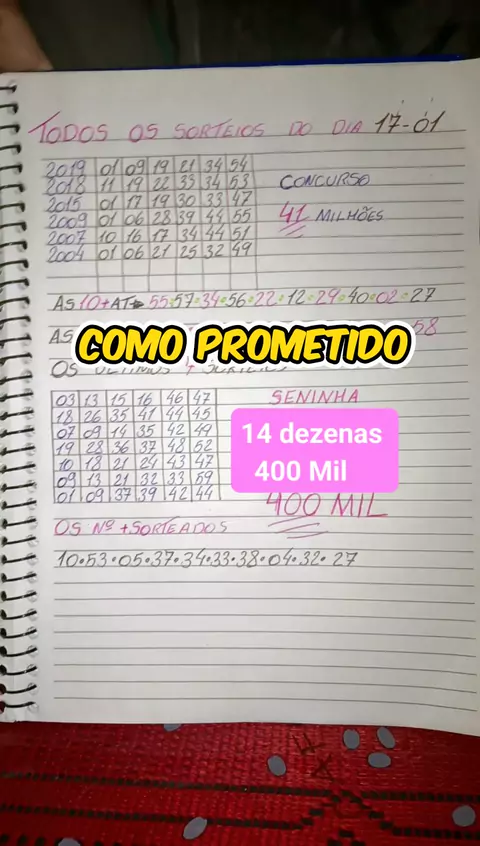 TODOS OS SORTEIOS DO DIA 17-01
2019 01 09 19 21 34 54
2018 11 19 22 33 34 53
2015 01 17 19 30 33 47
2009 01 06 28 39 44 55
2007 10 16 17 34 44 51
2004 01 06 21 25 32 49
CONCURSO
41 MILHÕES
AS 10+AT→ 55•57•34•56•22•12•29•40•02•27
AS 58
COMO PROMETIDO
OS
03 13 15 16 46 47
18 26 35 41 44 45
07 09 14 35 42 49
19 28 36 37 48 52
10 18 21 24 43 47
09 13 21 32 33 59
01 09 37 39 42 44
SENINHA
14 dezenas
400 Mil
400 MIL
OS Nº +SORTEADOS
10•53•05•37•34•33•38•04•32•27